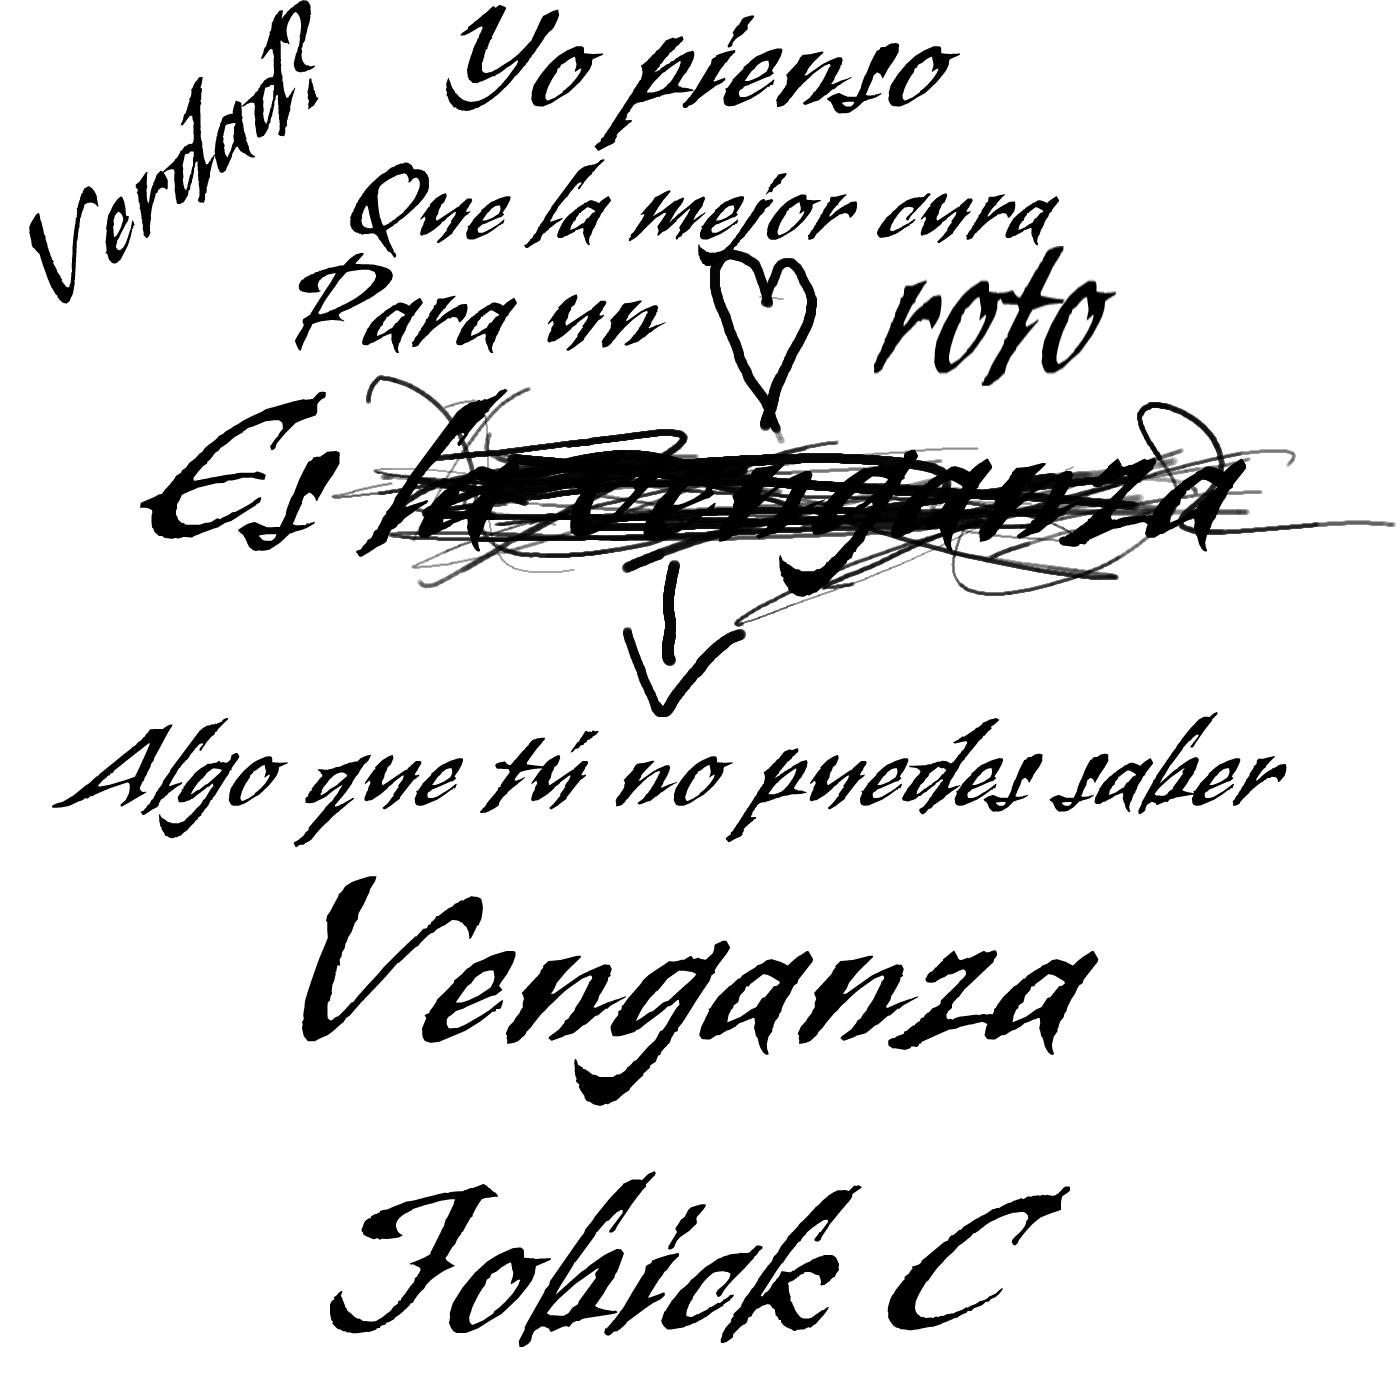 Verdad?
Yo pienso
Que la mejor cura
Para un roto
Es la venganza
Algo que tú no puedes saber
Venganza
Fobick C